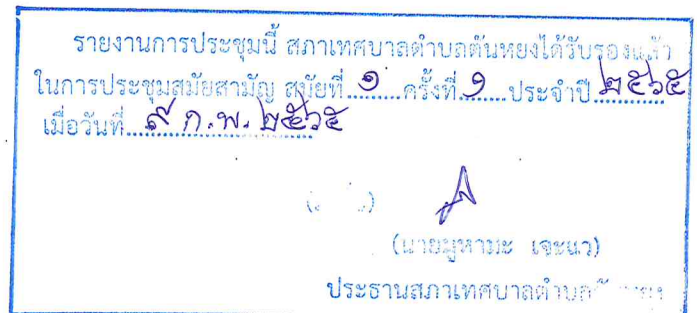 รายงานการประชุมนี้ สภาเทศบาลตำบลต้นหยงได้รับรองแล้ว
ในการประชุมสมัยสามัญ สมัยที่...๑...ครั้งที่.๑...ประจำปี.๒๕๖๕
เมื่อวันที่...๙ ก.พ. ๒๕๖๕
(นายมูหามะ เจะแว)
ประธานสภาเทศบาลตำบล